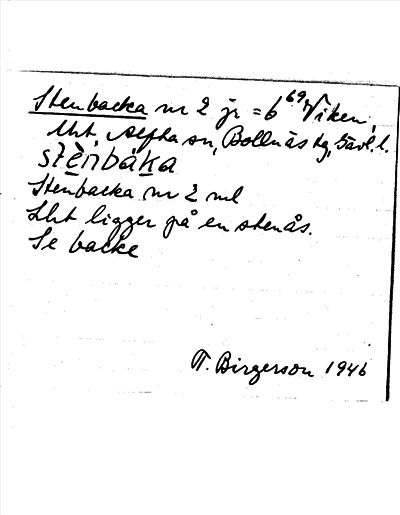 Stenbacka nr 2 jr = 6⁶⁹ Viken,
Lht, Alfta sn, Bollnäs tg, Gävl. l.
stènbáka
Stenbacka nr 2 ml
Lht ligger på en stenås.
Se backe
T. Birgerson 1946